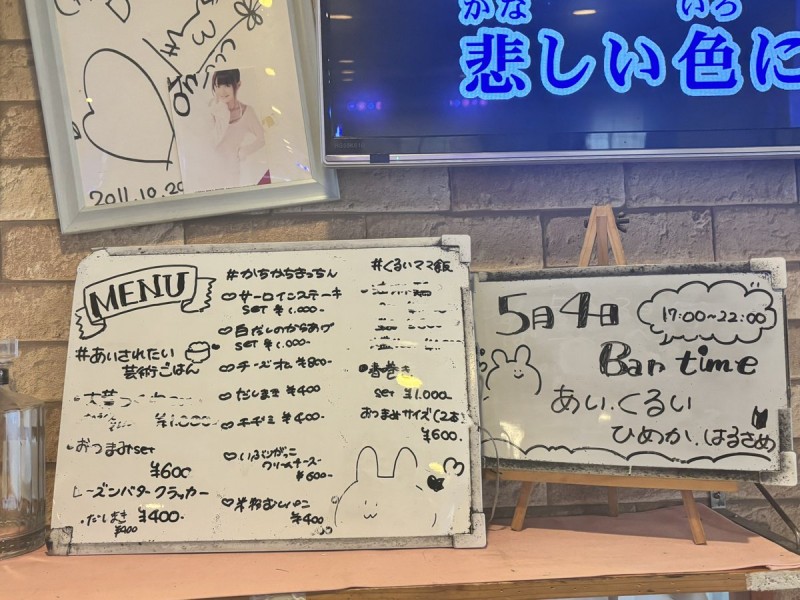 2011.10.20
かな
いろ
悲しい色に
MENU
#あいされたい
芸術ごはん
¥1.000-
おつまみset
¥600
レーズンバタークラッカー
¥400-
だしまき
¥400
#かちかちきっちん
サーロインステーキ
SET ¥1.000-
白だしのからあげ
SET ¥1.000-
チーズオム ¥800-
だしまき ¥400
チヂミ ¥400-
いぶりがっこ
クリームチーズ
¥600-
¥400
#くるいママ飯
春巻き
set ¥1.000
おつまみサイズ(2本)
¥600.
5月4日
17:00~22:00
Bar time
あい.くるい
ひめか.はるさめ